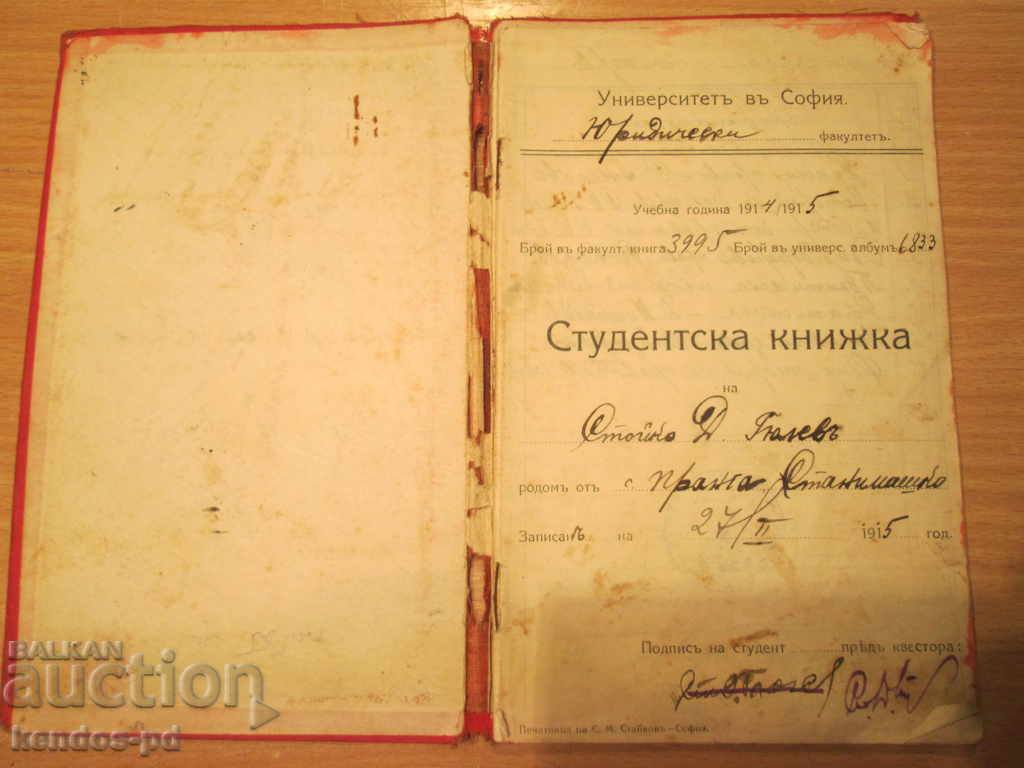 Университетъ въ София.
Юридически факултетъ.
Учебна година 1914/1915
Брой въ факулт. книга 3995 Брой въ универс. албумъ 6833
Студентска книжка
на
Стойко Д. Гюлевъ
родомъ отъ с. Пранга Станимашко
Записанъ на 27/II 1915 год.
Подпись на студент предъ квестора:
Печатница на С. М. Стайковъ – София.
BALKAN
auction
kendos-pd